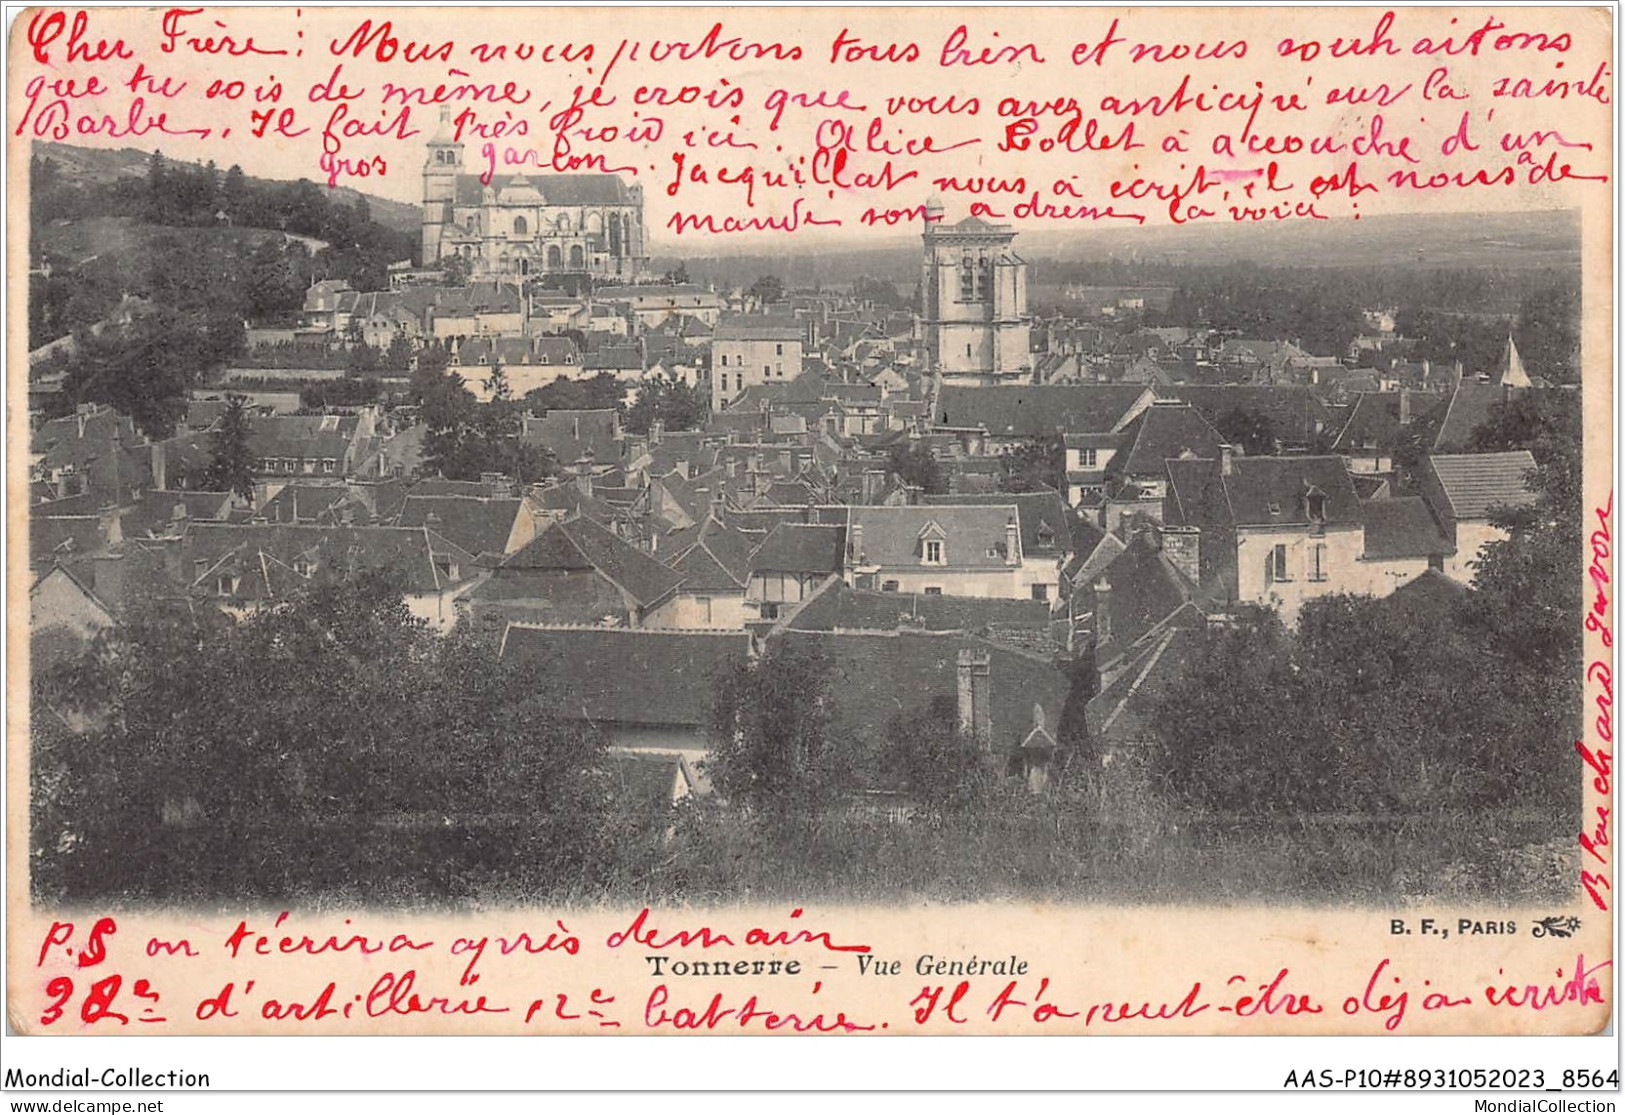 Cher Frère : Nous nous portons tous bien et nous souhaitons
que tu sois de même, je crois que vous avez anticipé sur la sainte
Barbe. Il fait très froid ici. Alice Collet à accouché d'un
gros garçon. Jacquillat nous à écrit, il nous a de
mandé son adresse, la voici :
Bouchard
P.S on t'écrira après demain
Tonnerre – Vue Générale
B. F., PARIS
d'artillerie, 12e battérie. Il t'a peut-être déja écrit
Mondial-Collection
AAS-P10#8931052023_8564
MondialCollection